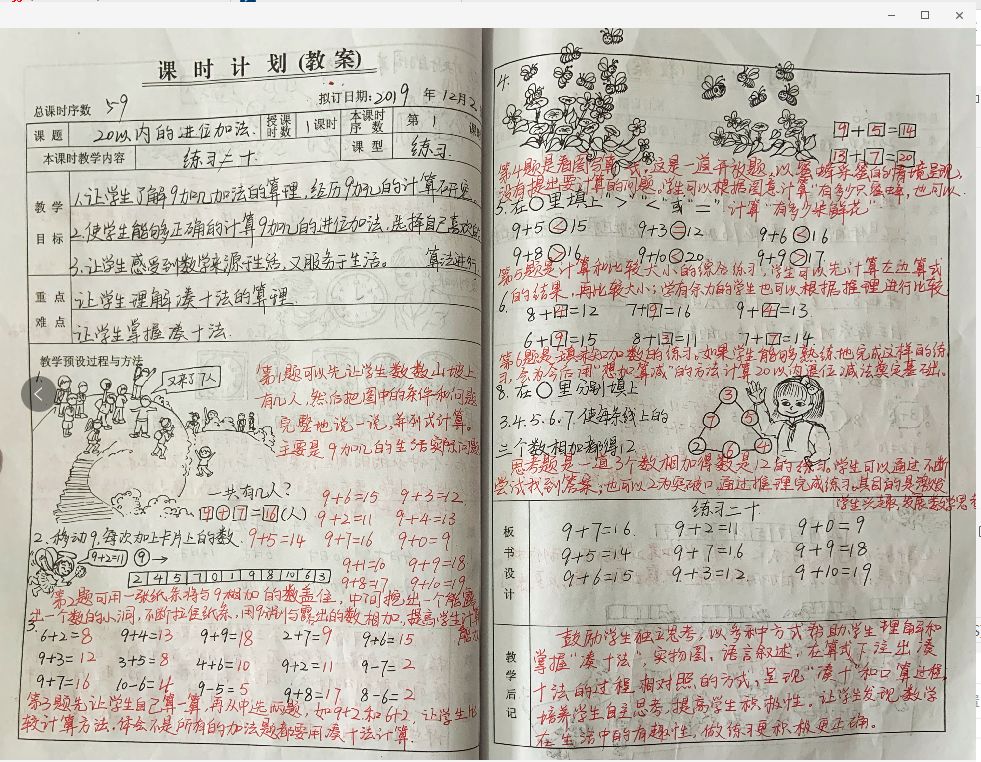 课时计划(教案)
总课时序数 59
拟订日期:2019年12月2
课题 20以内的进位加法. 授课时数 1课时 本课时序数 第1课时
本课时教学内容 练习二十. 课型 练习.
教学目标
1.让学生了解9加几加法的算理,经历9加几的计算
2.使学生能够正确的计算9加几的进位加法,选择自己喜欢的
算法进行
3.让学生感受到数学来源于生活,又服务于生活。
重点 让学生理解凑十法的算理.
难点 让学生掌握凑十法.
教学预设过程与方法
1.
又来了7人
第1题可以先让学生数数山坡上
有几人,然后把图中的条件和问题
完整地说一说,并列式计算。
主要是9加几的生活实际问题
一共有几人?
9+7=16(人)
9+6=15 9+3=12
9+2=11 9+4=13
2.移动9,每次加上卡片上的数. 9+5=14 9+7=16 9+0=9
9+2=11 9
9+1=10 9+9=18
2 4 5 7 0 1 9 8 10 6 3
9+8=17 9+10=19
第2题可用一张纸条将与9相加的数盖住,中间挖出一个能露
出一个数的小洞,不断拉住纸条,用9说与露出的数相加,提高学生计算
能力
3.
6+2=8 9+4=13 9+9=18 2+7=9 9+6=15
9+3=12 3+5=8 4+6=10 9+2=11 9-7=2
9+7=16 10-6=4 9-5=5 9+8=17 8-6=2
第3题先让学生自己算一算,再从中选两题,如9+2和6+2,让学生比
较计算方法.体会不是所有的加法题都要用凑十法计算.
4.
9+5=14
13+7=20
第4题是看图写算式,这是一道开放题,以蜜蜂采蜜的情境呈现,
没有提出要计算的问题。学生可以根据图意计算"有多少只蜜蜂,也可以
计算"有多少朵鲜花"
5.在○里填上">""<"或"="
9+5<15 9+3=12 9+6<16
9+8>16 9+10<20 9+9>17
第5题是计算和比较大小的综合练习,学生可以先计算左边算式
的结果,再比较大小;学有余力的学生也可以根据推理进行比较
6.
8+4=12 7+9=16 9+4=13
6+9=15 8+3=11 7+7=14
第6题是填未知加数的练习。如果学生能够熟练地完成这样的练
习,会为今后用"想加算减"的方法计算20以内退位减法奠定基础.
8.在○里分别填上
3.4.5.6.7.使每条线上的
三个数相加都得12
3
7 5
2 6 4
思考题是一道3个数相加得数是12的练习,学生可以通过不断
尝试找到答案;也可以2为突破口通过推理完成练习.其目的是激发
学生兴趣,发展数学思考
板书设计
练习二十
9+7=16. 9+2=11 9+0=9
9+5=14 9+7=16 9+9=18
9+6=15 9+3=12 9+10=19
教学后记
鼓励学生独立思考,以多种方式帮助学生理解和
掌握"凑十法",实物图、语言叙述、在算式下注出凑
十法的过程相对照的方式,呈现"凑十"和口算过程,
培养学生自主思考,提高学生积极性。让学生发现数学
在生活中的有趣性,做练习更积极更正确。